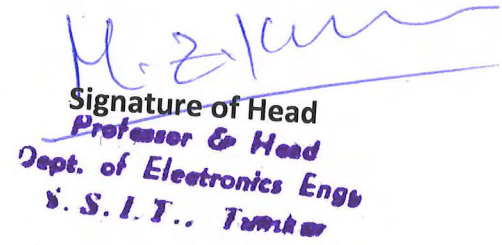 Signature of Head
Professor & Head
Dept. of Electronics Engg
S. S. I. T., Tumkur